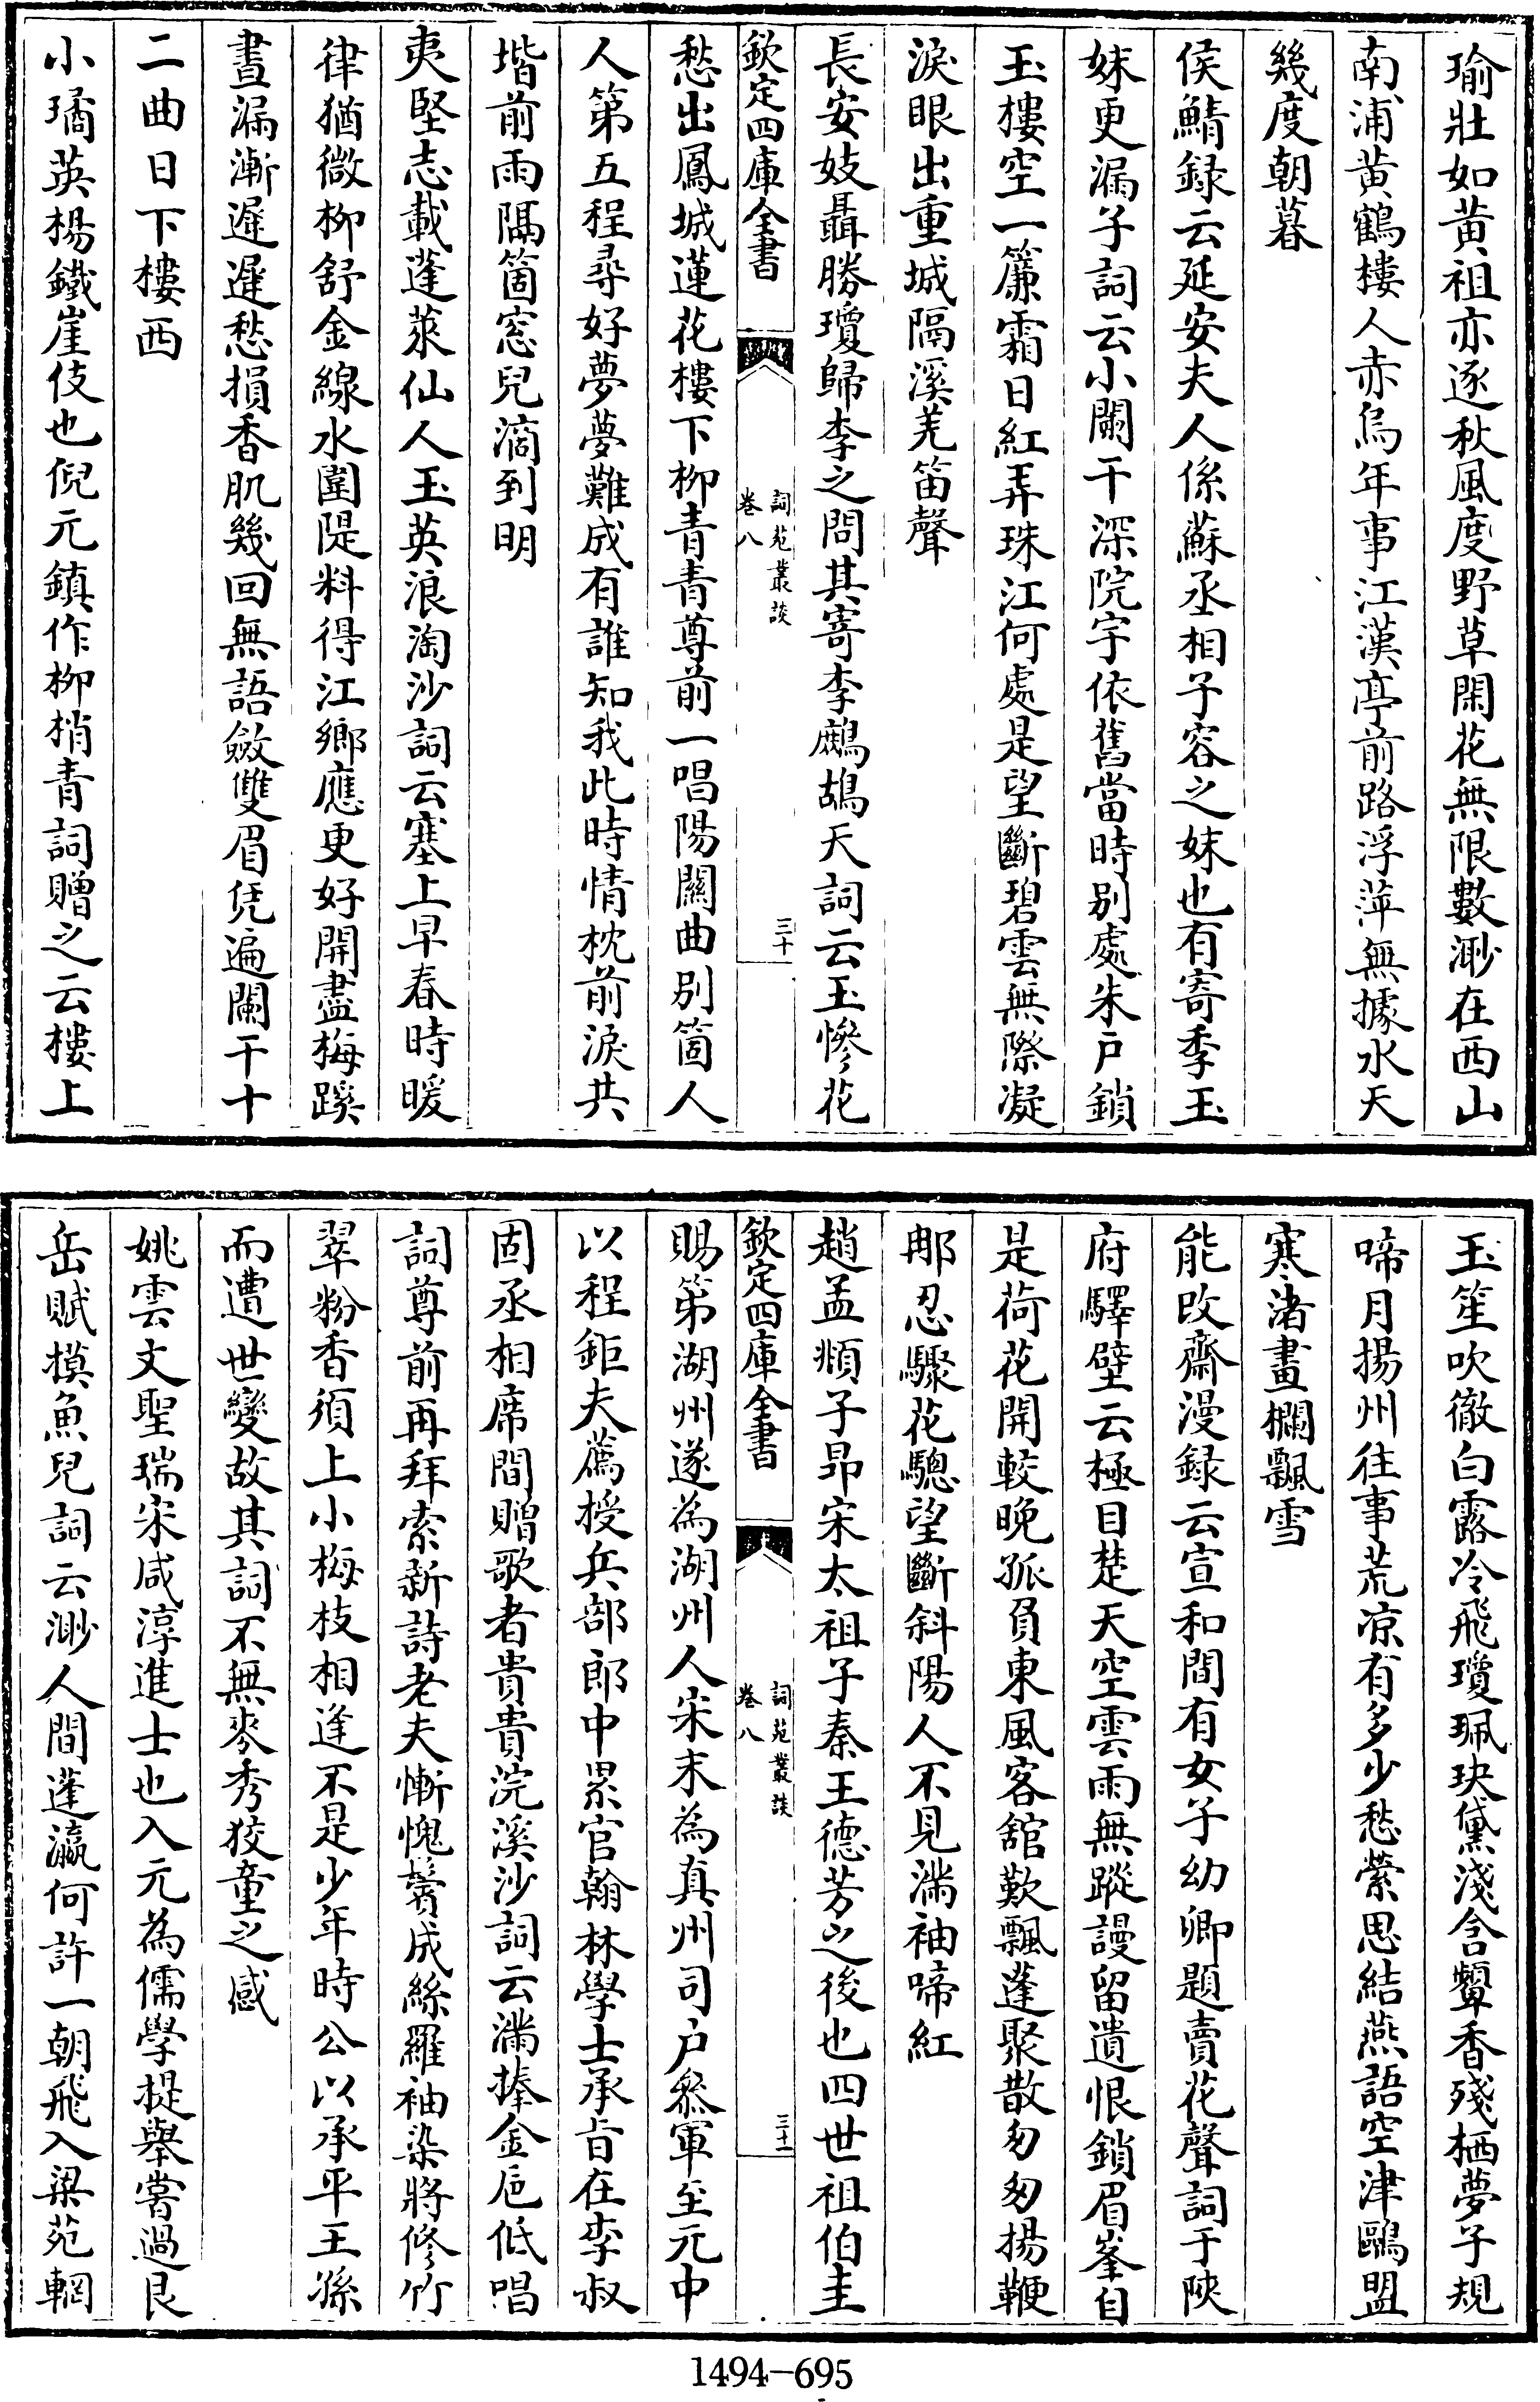 瑜壯如黄祖亦逐秋風度野草閑花無限數渺在西山
南浦黄鶴樓人赤烏年事江漢亭前路浮萍無據水天
幾度朝暮
侯鯖録云延安夫人係蘇丞相子容之妹也有寄季玉
妹更漏子詞云小闌干深院宇依舊當時别處朱户鎖
玉樓空一簾霜日紅弄珠江何處是望斷碧雲無際凝
淚眼出重城隔溪羌笛聲
長安妓聶勝瓊歸李之問其寄李鷓鴣天詞云玉慘花
欽定四庫全書
詞苑叢談
卷八
三十
愁出鳳城蓮花樓下柳青青尊前一唱陽關曲别箇人
人第五程尋好夢夢難成有誰知我此時情枕前淚共
堦前雨隔箇窓兒滴到明
夷堅志載蓬萊仙人玉英浪淘沙詞云塞上早春時暖
律猶微柳舒金線水圍隄料得江鄉應更好開盡梅蹊
晝漏漸遲遲愁損香肌幾回無語斂雙眉凭遍闌干十
二曲日下樓西
小璚英楊鐵崖伎也倪元鎮作柳梢青詞贈之云樓上
玉笙吹徹白露冷飛瓊珮玦黛淺含顰香殘栖夢子規
啼月揚州往事荒凉有多少愁縈思結燕語空津鷗盟
寒渚畫欄飄雪
能改齋漫録云宣和間有女子幼卿題賣花聲詞于陜
府驛壁云極目楚天空雲雨無蹤謾留遺恨鎖眉峯自
是荷花開較晚孤負東風客舘歎飄蓬聚散匆匆揚鞭
那忍驟花驄望斷斜陽人不見滿袖啼紅
趙孟頫子昂宋太祖子秦王德芳之後也四世祖伯圭
欽定四庫全書
詞苑叢談
卷八
三十一
賜第湖州遂為湖州人宋末為真州司户叅軍至元中
以程鉅夫薦授兵部郎中累官翰林學士承旨在李叔
固丞相席間贈歌者貴貴浣溪沙詞云滿捧金巵低唱
詞尊前再拜索新詩老夫慚愧鬢成絲羅袖染將修竹
翠粉香須上小梅枝相逢不是少年時公以承平王孫
而遭世變故其詞不無麥秀狡童之感
姚雲文聖瑞宋咸淳進士也入元為儒學提舉嘗過艮
岳賦摸魚兒詞云渺人間蓬瀛何許一朝飛入梁苑輞
1494-695